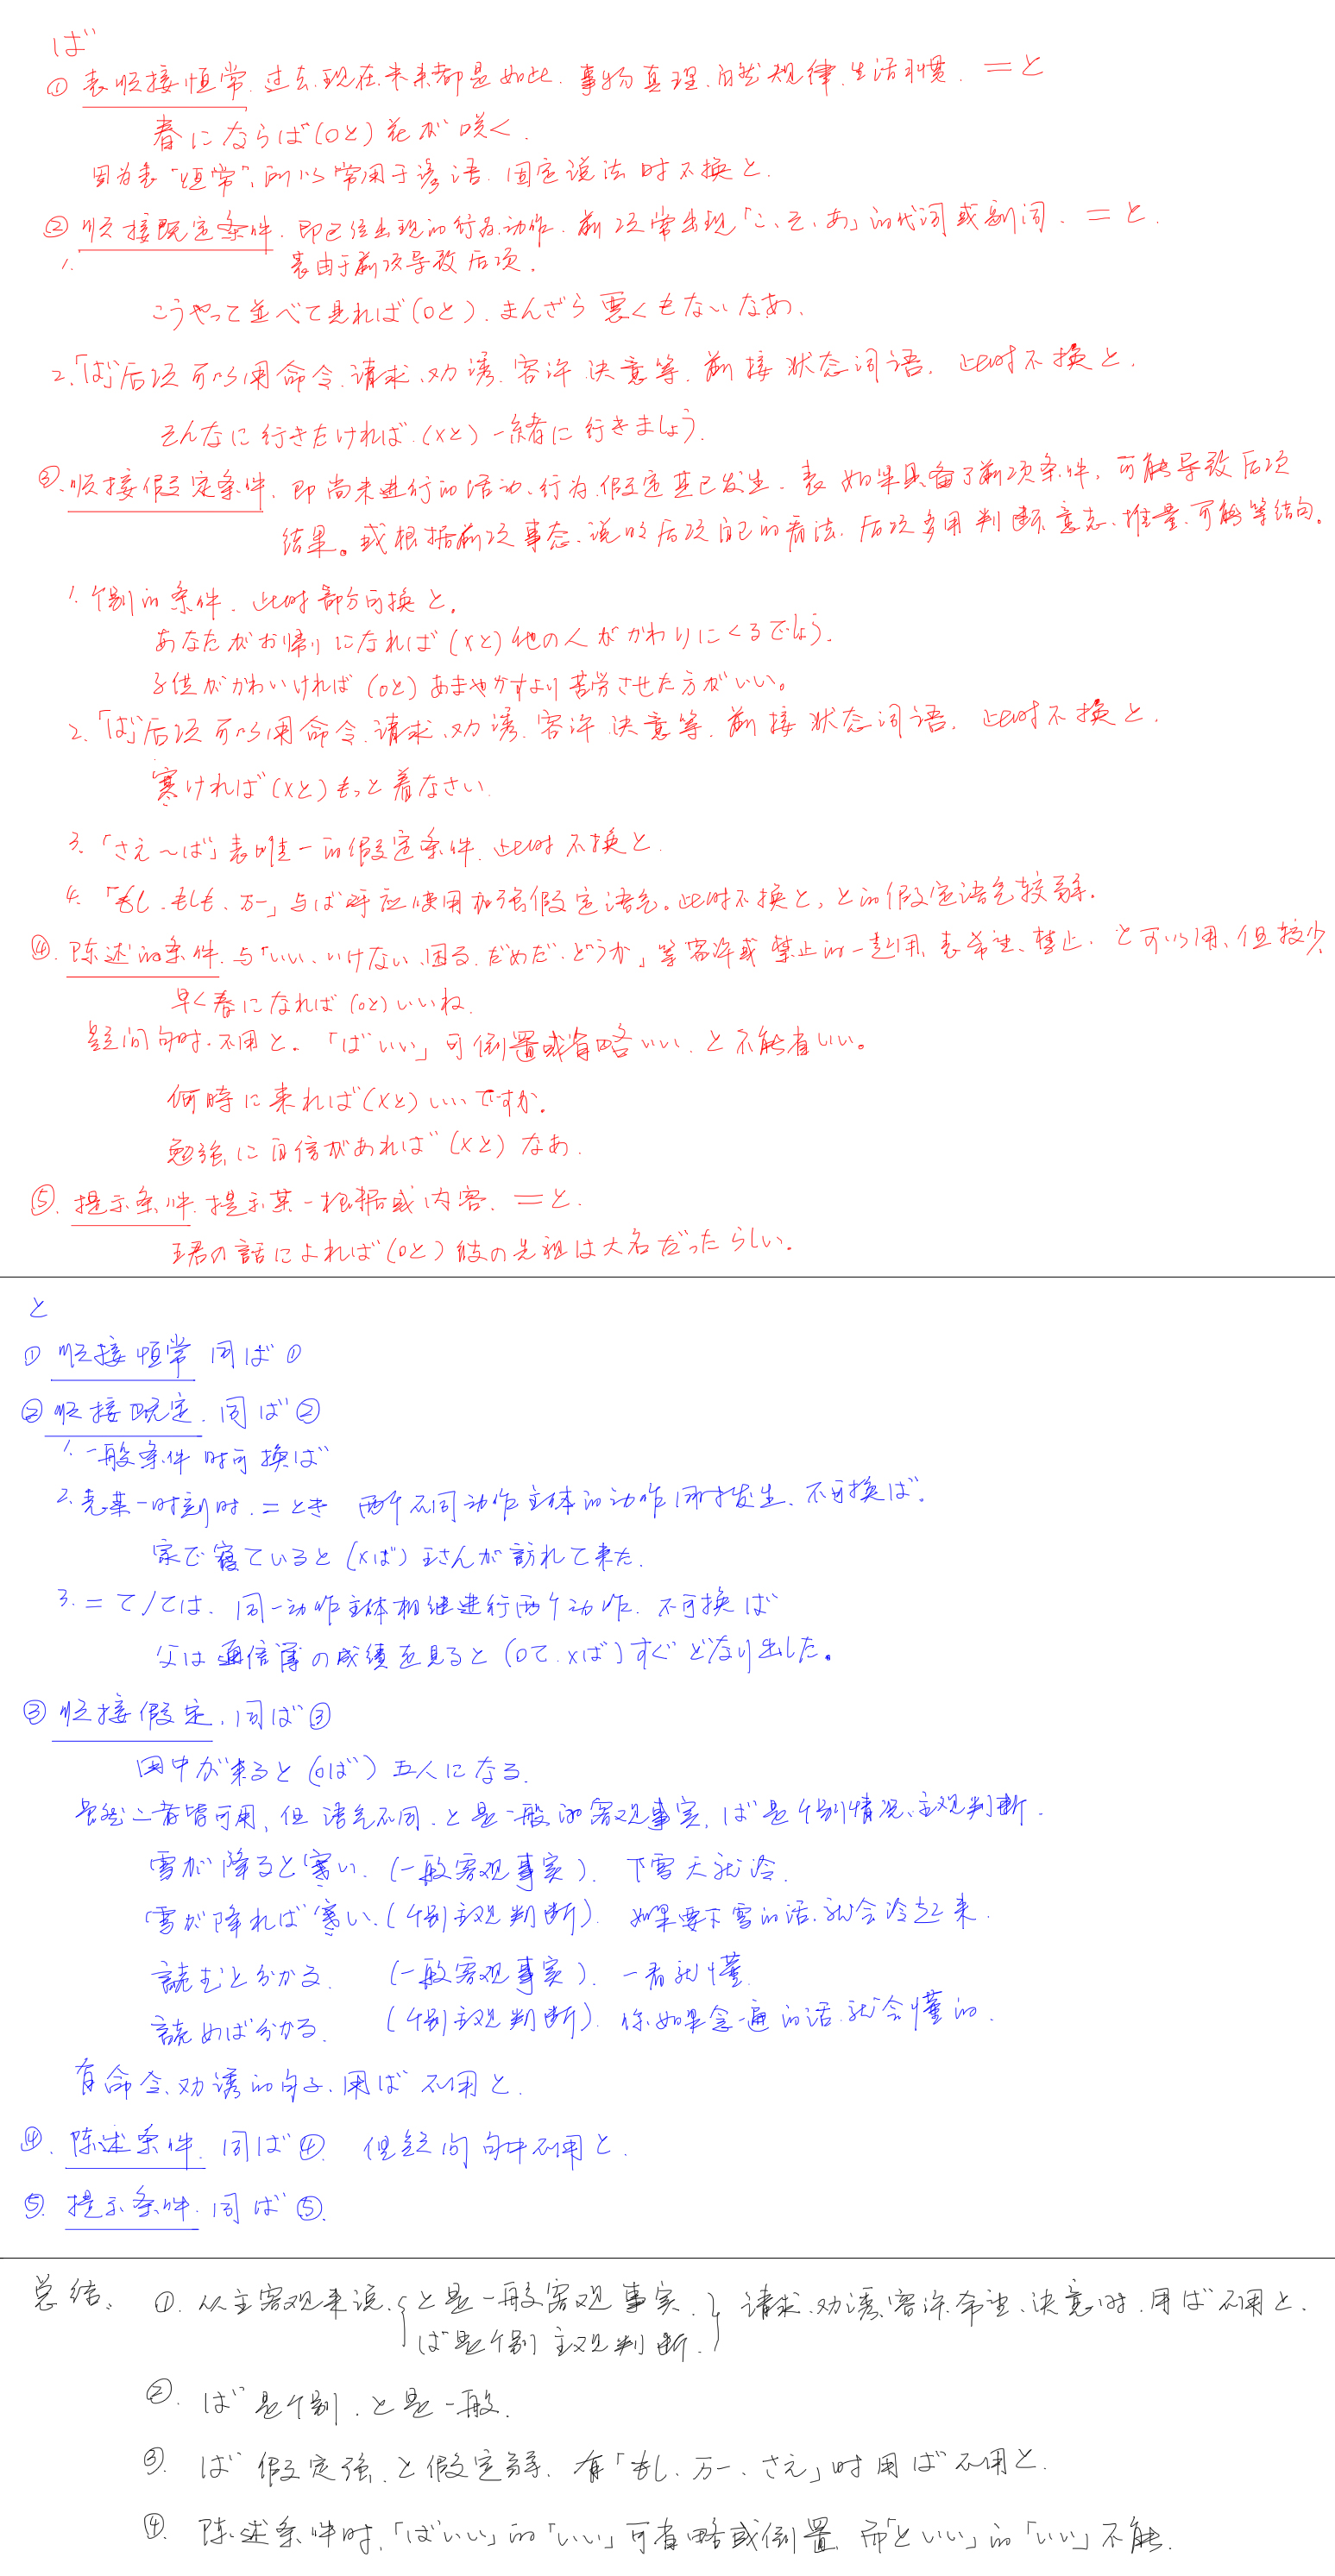 ば
① 表顺接恒常. 过去.现在.未来都是如此. 事物真理.自然规律.生活习惯. ＝と
春にならば(oと)花が咲く.
因为表“恒常”,所以常用于谚语.固定说法时不换と.
② 顺接既定条件. 即已经出现的行为.动作. 前项常出现「こ、そ、あ」的代词或副词. ＝と.
1. 表由于前项导致后项.
こうやって並べて見れば(oと).まんざら悪くもないなあ.
2.「ば」后项可以用命令.请求.劝诱.容许.决意等.前接状态词语. 此时不换と.
そんなに行きたければ.(xと)一緒に行きましょう.
③.顺接假定条件. 即尚未进行的活动.行为.假定其已发生. 表如果具备了前项条件,可能导致后项
结果。或根据前项事态.说明后项自己的看法. 后项多用判断.意志.推量.可能等结句.
1.个别的条件. 此时部分可换と.
あなたがお帰りになれば(xと)他の人がかわりにくるでしょう.
子供がかわいければ(oと)あまやかすより苦労させた方がいい。
2.「ば」后项可以用命令.请求.劝诱.容许.决意等.前接状态词语. 此时不换と.
寒ければ(xと)もっと着なさい.
3.「さえ～ば」表唯一的假定条件.此时不换と.
4.「もし.もしも.万一」与ば呼应使用加强假定语气。此时不换と,との假定语气较弱.
④.陈述的条件.与「いい.いけない.困る.だめだ.どうか」等容许或禁止的一起用.表希望、禁止. と可以用.但较少.
早く春になれば(oと)いいね.
疑问句时.不用と. 「ばいい」可倒置或省略いい.と不能省いい。
何時に来れば(xと)いいですか.
勉強に自信があれば(xと)なあ.
⑤.提示条件.提示某一根据或内容. ＝と.
王君の話によれば(oと)彼の先祖は大名だったらしい.
と
① 顺接恒常 同ば①
② 顺接既定.同ば②
1.一般条件时可换ば
2.表某一时刻时.＝とき 两个不同动作主体的动作同时发生.不可换ば.
家で寝ていると(xば)王さんが訪れて来た.
3.＝て/ては. 同一动作主体相继进行两个动作. 不可换ば
父は通信簿の成績を見ると(oて.xば)すぐどなり出した。
③ 顺接假定.同ば③
田中が来ると(oば)五人になる.
虽然二者皆可用,但语气不同.と是一般的客观事实,ば是个别情况、主观判断.
雪が降ると寒い.(一般客观事实). 下雪天就冷.
雪が降れば寒い.(个别主观判断). 如果要下雪的话.就会冷起来.
読むと分かる. (一般客观事实). 一看就懂.
読めば分かる. (个别主观判断). 你如果念一遍的话.就会懂的.
有命令.劝诱的句子.用ば不用と.
④. 陈述条件. 同ば④. 但疑问句中不用と.
⑤. 提示条件.同ば⑤.
总结: ①.从主客观来说.{と是一般客观事实.} 请求.劝诱.容许.希望、决意时.用ば不用と.
ば是个别主观判断.
②. ば是个别.と是一般.
③. ば假定强.と假定弱. 有「もし.万一.さえ」时用ば不用と.
④. 陈述条件时.「ばいい」的「いい」可省略或倒置.而「といい」的「いい」不能.